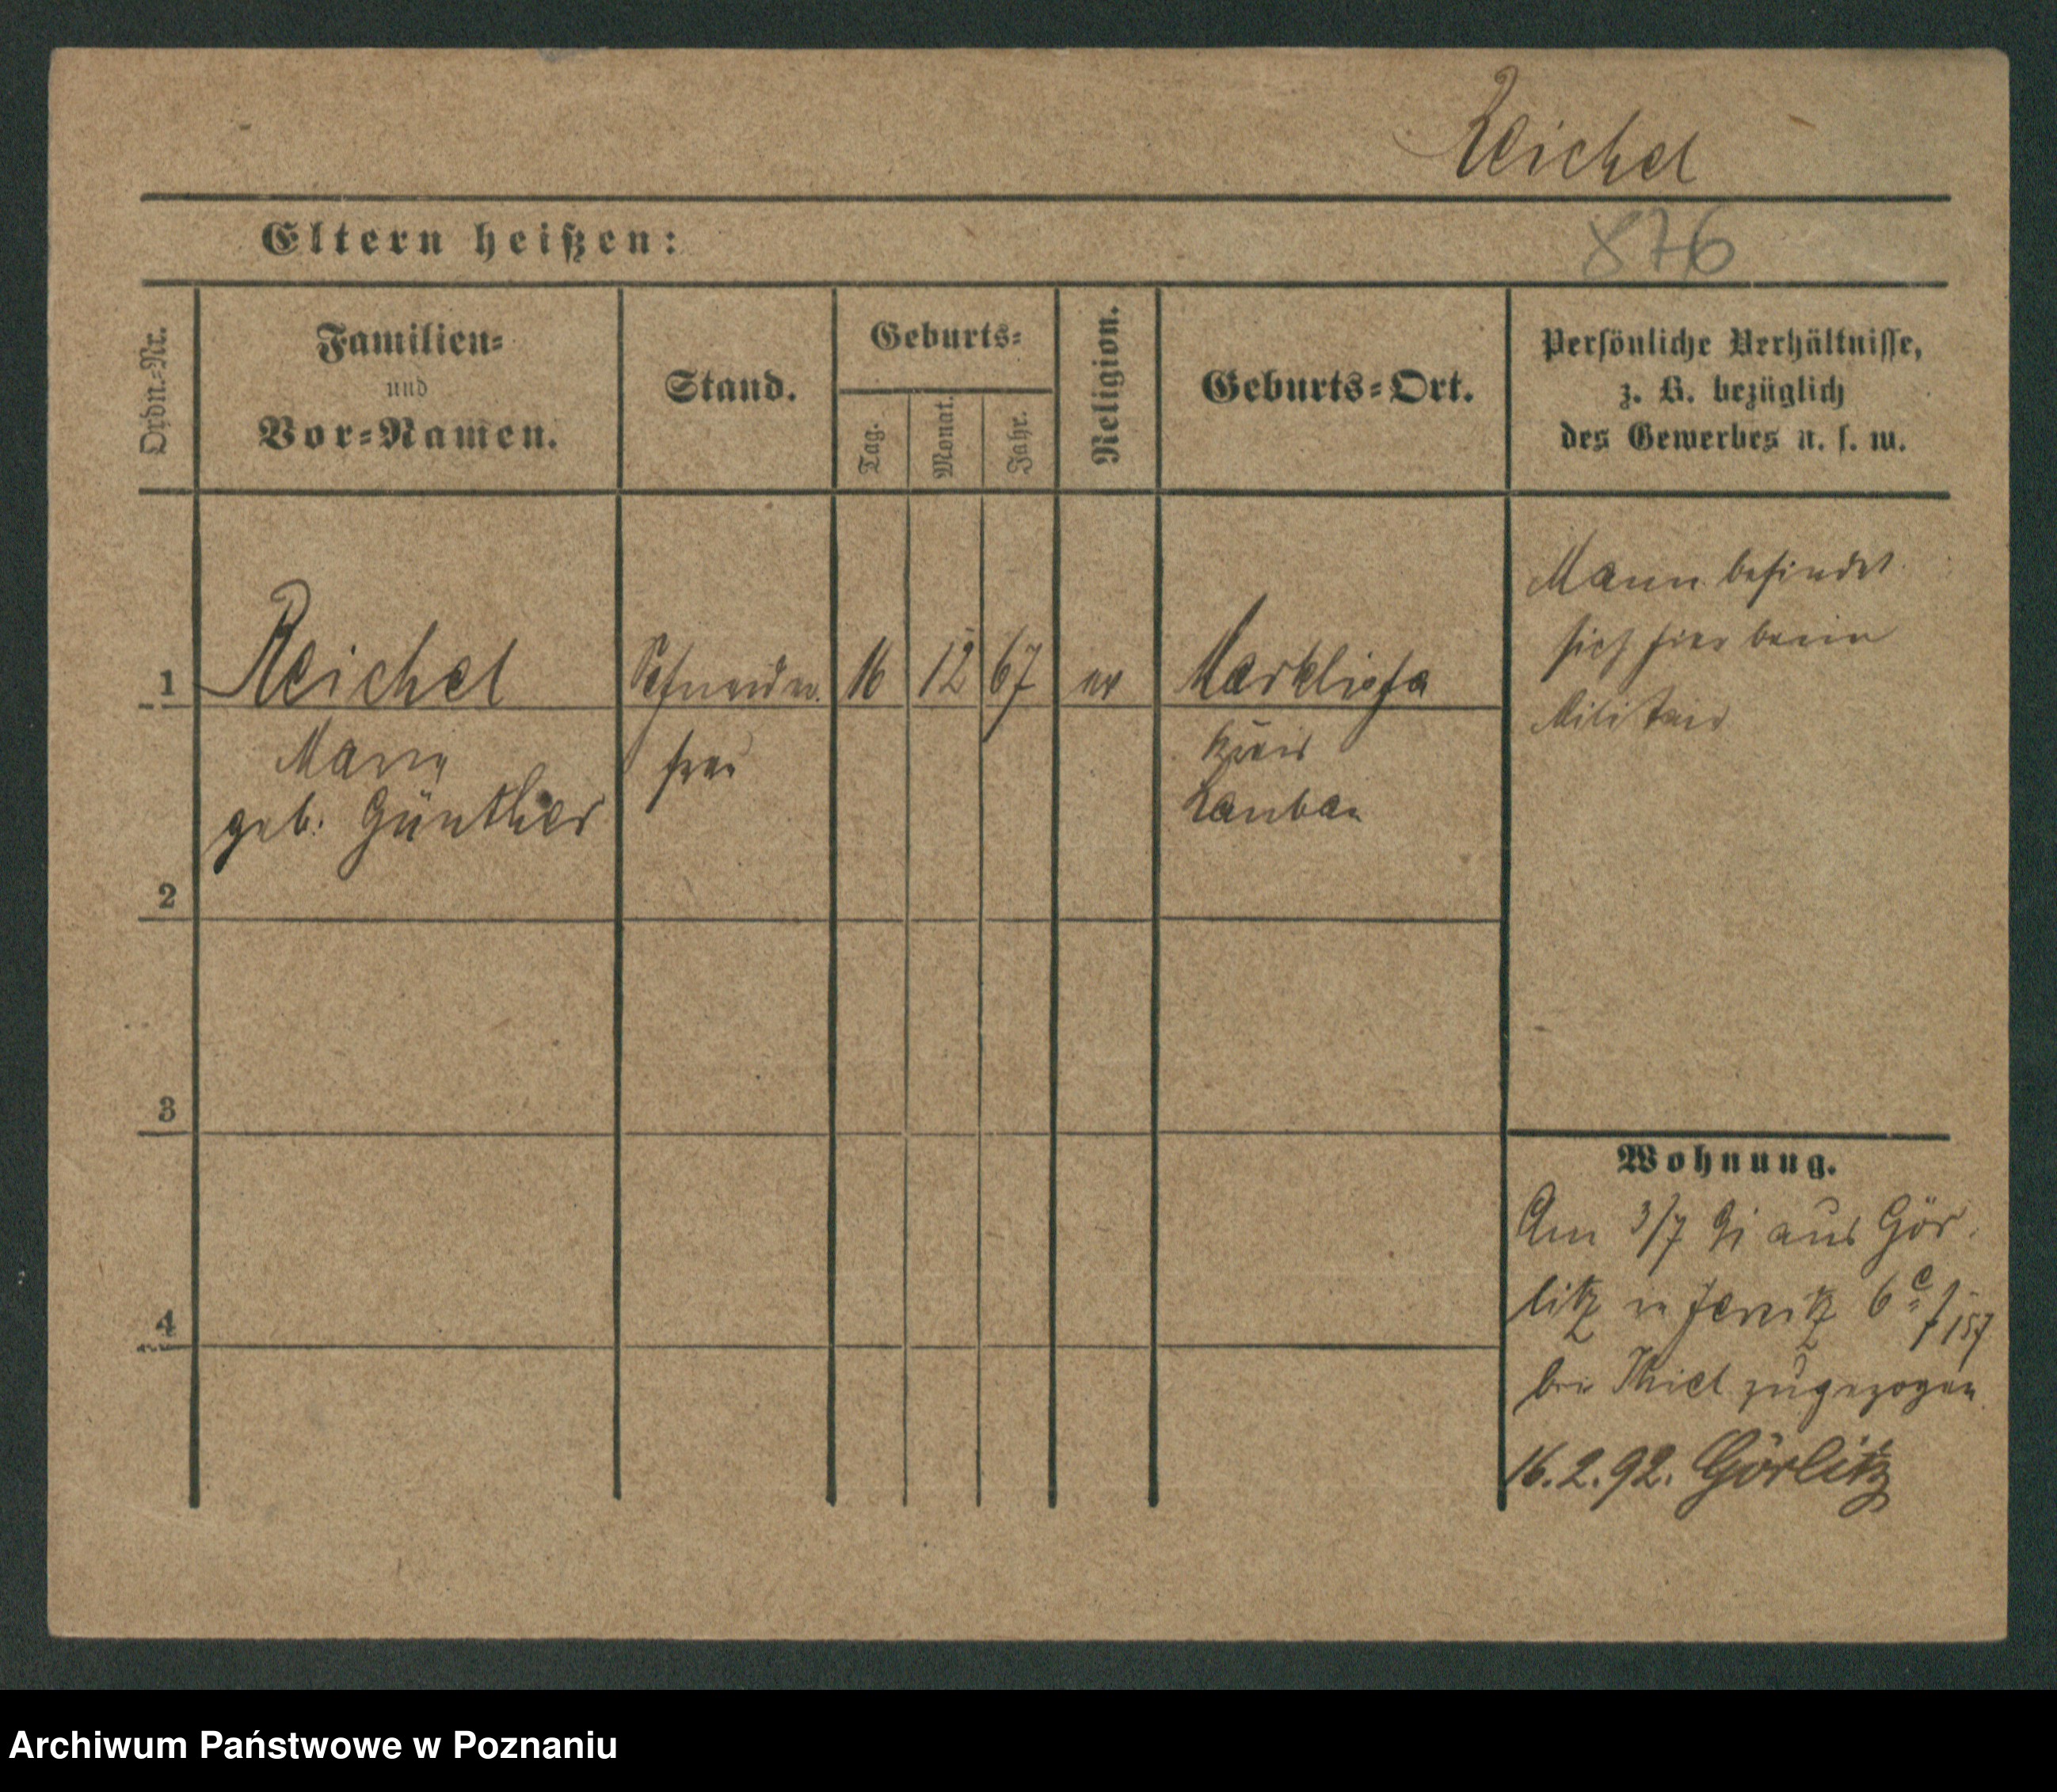 Reichel
Eltern heißen:
876
Ordn.-Nr.
Familien-
und
Vor-Namen.
Stand.
Geburts-
Tag.
Monat.
Jahr.
Religion.
Geburts-Ort.
Persönliche Verhältnisse,
z. B. bezüglich
des Gewerbes u. s. w.
1
Reichel
Schneider
16
12
67
ev
Marklissa
Mann befindet
sich hier beim
Militair
Marie
frau
Kreis
geb. Günther
Lauban
2
3
4
Wohnung.
Am 3/7 91 aus Gör-
litz in Jersitz 6 157
bei Thiel zugezogen
16.2.92. Görlitz
Archiwum Państwowe w Poznaniu